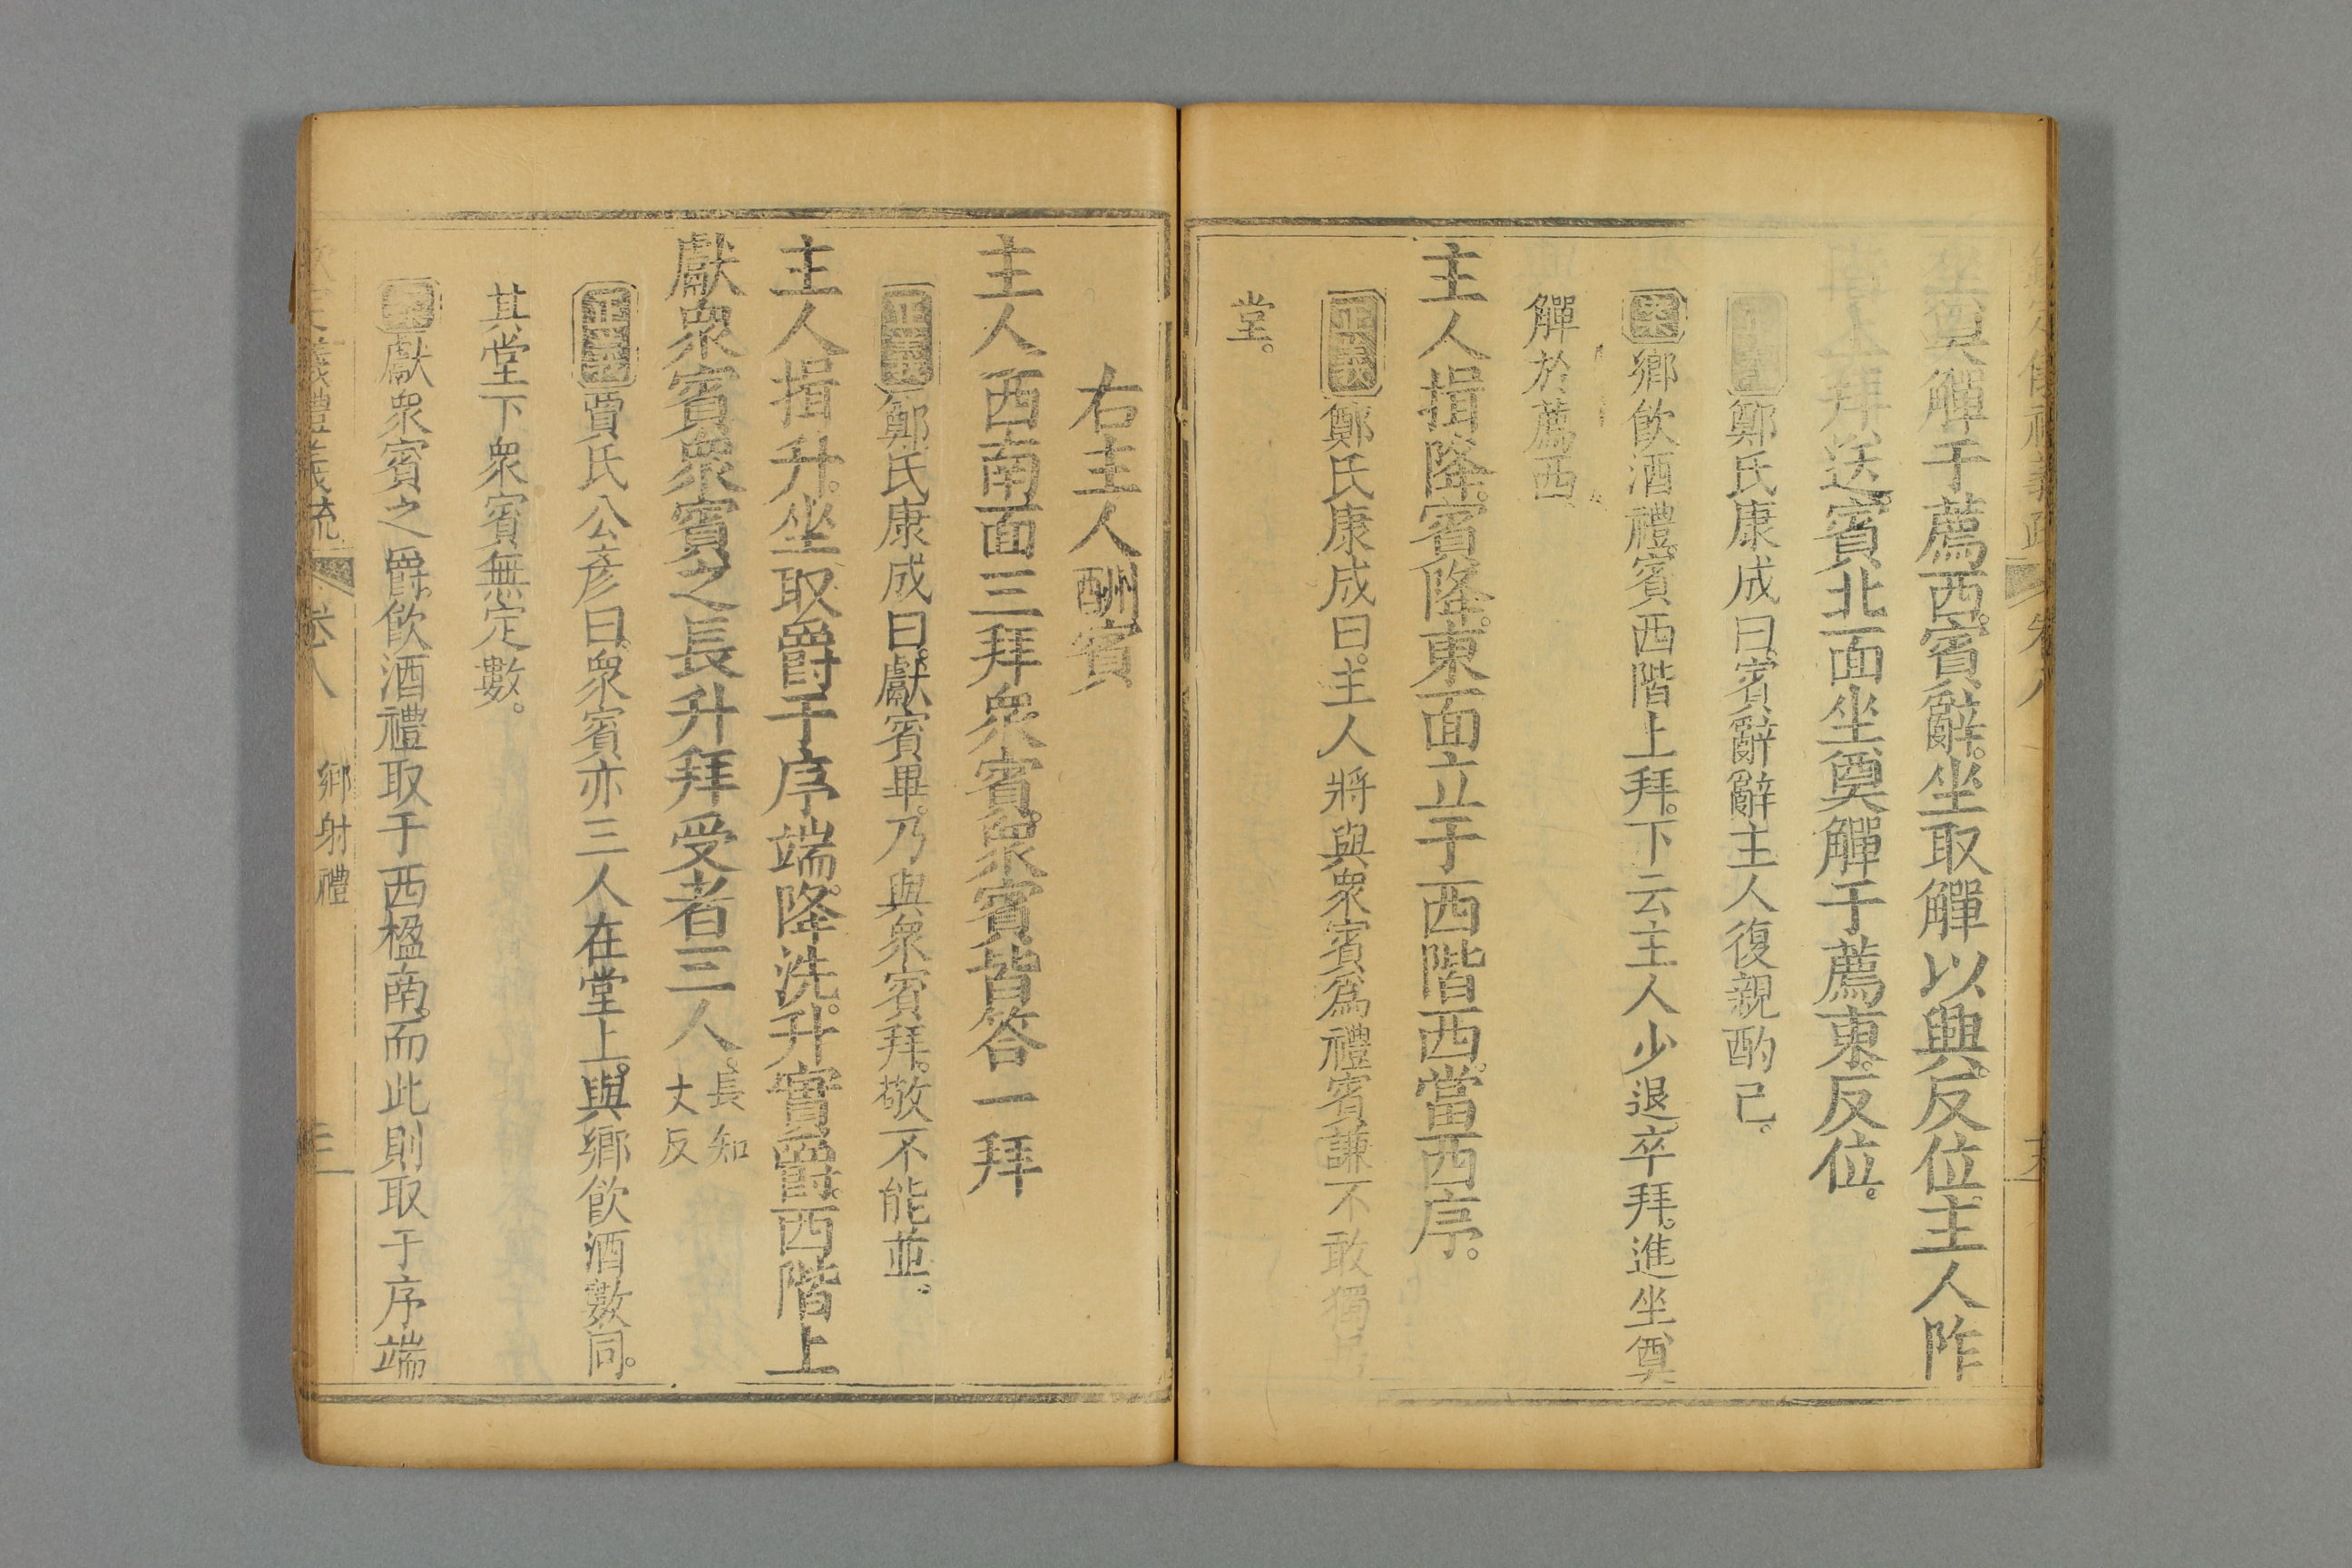 坐奠觶于薦西。賓辭。坐取觶以興。反位。主人阼
階上拜送。賓北面坐奠觶于薦東。反位。
正義鄭氏康成曰。賓辭辭主人復親酌己。
案鄉飲酒禮。賓西階上拜。下云主人少退。卒拜。進坐奠
觶於薦西。
主人揖降。賓降。東面立于西階西。當西序。
正義鄭氏康成曰。主人將與衆賓爲禮。賓謙不敢獨居
堂。
右主人酬賓
主人西南面三拜衆賓。衆賓皆答一拜
正義鄭氏康成曰。獻賓畢。乃與衆賓拜。敬不能並。
主人揖升。坐取爵于序端。降洗。升實爵。西階上
獻衆賓。衆賓之長升拜受者三人。長知丈反
正義賈氏公彥曰。衆賓亦三人在堂上。與鄉飲酒數同。
其堂下衆賓無定數。
案獻衆賓之爵。飲酒禮取于西楹南。而此則取于序端
欽定儀禮義疏 卷八 鄉射禮